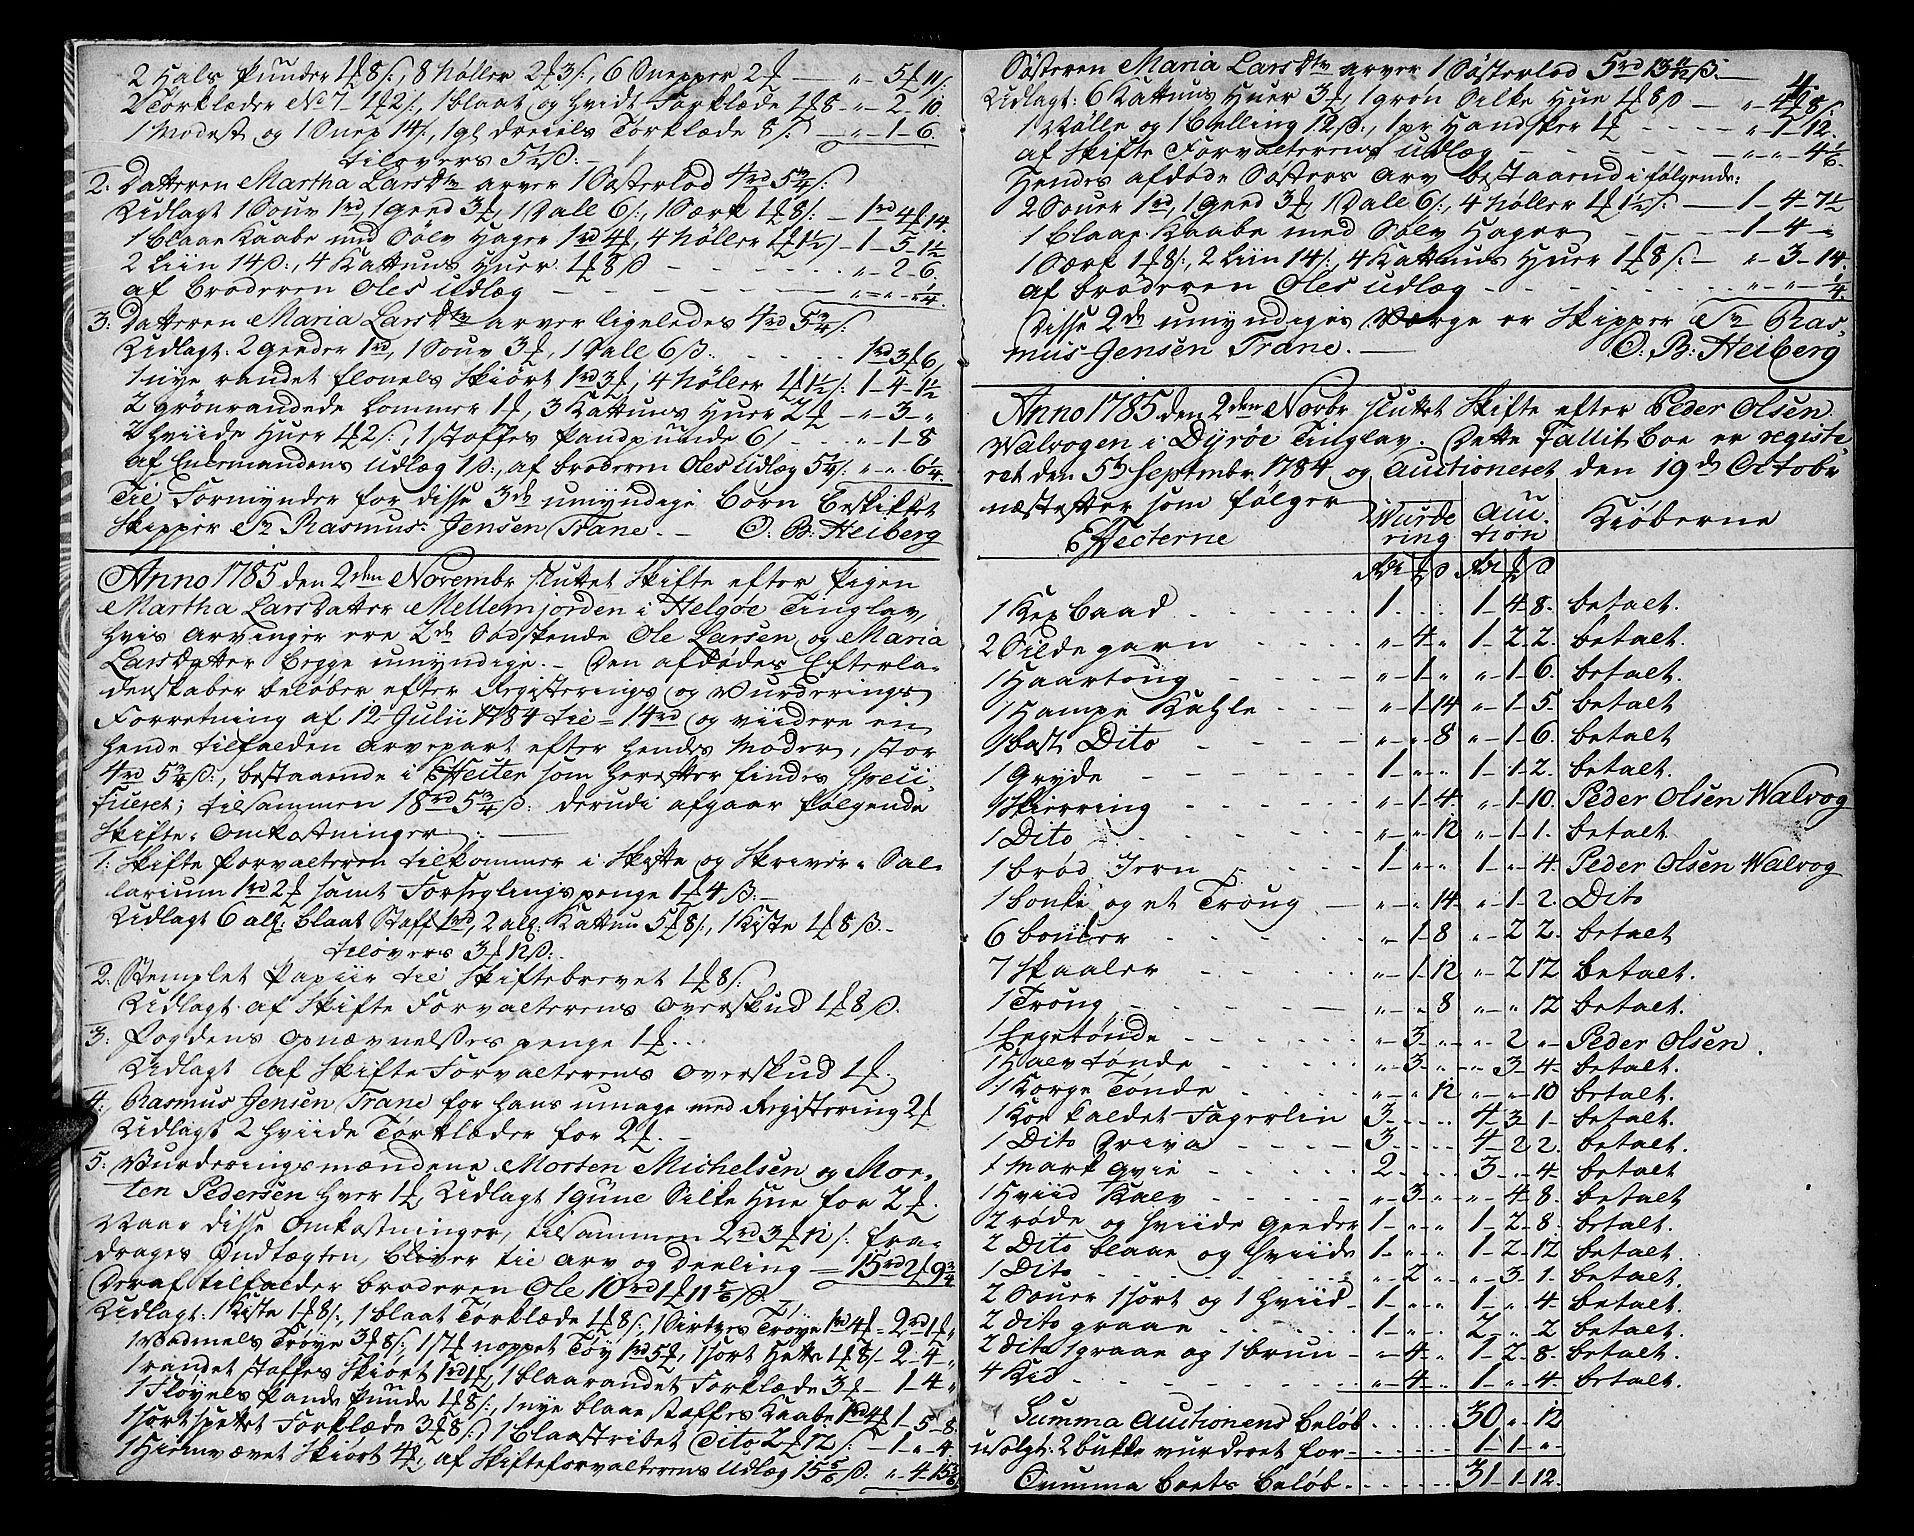 2 Hals punder 1 f 8 s:, 8 Nøller 2 f 3 s:, 6 Snepper 2 f — „ - 5 f 11 s:
2 Tørklæder No 7. 1 f 2 s:, 1 blaat og hvidt Forklæde 1 f 8 - „ - 2 10.
1 Modest og 1 Snep 14 s:, 1 gl dreiels Tørklæde 8 s: — „ - 1 - 6.
tilovers 5 1/4 ß: -
2: Datteren Martha Larsdtr arver 1 Søsterlod 4 rd 5 3/4 s:
Udlagt 1 Souv 1 rd, 1 geed 3 f, 1 Qalle 6 s:, 1 Særk 1 f 8 s: - 1 rd 4 f 14.
1 blaae Kaabe med Sølv Hager 1 rd 4 f, 4 Nøller 1 f 1 1/2 s - 1 - 5 1 1/2
2 Liin 14 ß:, 4 Kattuns Huer 1 f 8 ß - - - - - „ - 2 - 6.
af broderen Oles Udlæg - - - - - „ - „ - 1/4
3: Datteren Maria Larsdtr arver ligeledes 4 rd 5 3/4 s:
Udlagt: 2 geeder 1 rd, 1 Souv 3 f, 1 Qalle 6 ß. - - - - 1 rd 3 f 6.
1 nye randet flonels Skiørt 1 rd 3 f, 4 Nøller 1 f 1 1/2 s: 1 - 4 - 1 1/2
2 grønrandede Lommer 1 f, 3 Kattuns Huer 2 f - „ - 3 - „
2 Hviide Huer 4 f 2 s:, 1 stoffes Pandpunde 6 s - - - „ - 1 - 8
af Enkemandens Udlæg 1 ß:, af broderen Oles Udlæg 5 1/4 s: „ - „ - 6 1/4.
Til Formynder for disse 3de umyndige Børn Beskikket
Skipper Sr Rasmus Jensen Trane. - O. B: Heiberg
Anno 1785 den 2den Novembr sluttet Skifte efter Pigen
Martha Larsdatter Mellemjorden i Helgøe Tinglav,
hvis Arvinger ere 2de Sødskende Ole Larsen og Maria
Larsdatter begge umyndige. - Den afdødes Efterla-
denskaber beløber efter Registerings og Vurderings
Forretning af 12 Julii 1784 til = 14 rd og viidere en
hende tilfalden arvepart efter hendes Moder, stor
4 rd 5 3/4 ß:, bestaaende i Effecter som herefter findes speci-
ficeret; tilsammen 18 rd 5 3/4 ß: derudi afgaar følgende
Skifte-Omkostninger: —
1: Skifteforvalteren tilkommer i Skifte og Skriver-Sal-
larium 1 rd 2 f samt Forseglingspenge 1 f 4 ß. -
Udlagt 6 al: blaat Stoff 1 rd, 2 al: Kattun 5 f 8 s:, 1 Kiste 1 f 8 ß. -
tilovers 3 f 12 ß: -
2: Stemplet Papiir til Skiftebrevet 1 f 8 s:
Udlagt af Skifte Forvalterens Overskud 1 f 8 ß.
3: Fogdens Opnævnelses penge 1 f. . .
Udlagt af Skifte Forvalterens Overskud 1 f.
4. Rasmus Jensen Trane for hans umage med Registering 2 f
Udlagt 2 Hviide Tørklæder for 2 f. -
5: Vurderingsmændene Morten Michelsen og Mor-
ten Pedersen hver 1 f, Udlagt 1 Silke Hue for 2 f.
Naar disse Omkostninger, tilsammen 2 rd 3 f 12 s: fra-
drages Indtægten, bliver til Arv og Deeling = 15 rd 2 f 9 3/4
Deraf tilfalder broderen Ole 10 rd 1 f 11 5/6 ß.
Udlagt: 1 Kiste 1 f 8 s:, 1 blaat Tørklæde 1 f 8 s:, 1 Sirtzes Trøye 1 rd 4 f = 2 rd 1 f „
1 Vadmels Trøye 3 f 8 s:, 1 noppet Tøy 1 rd 5 f, 1 sort Hette 1 f 8 s - 2 - 4 - „
1 randet stoffes Skiørt 1 rd 1 f, 1 blaarandet Forklæde 3 f - 1 - 4 „
1 Fløyels Pande Punde 1 f 8 s:, 1 nye blaae stoffes Kaabe 1 rd 4 f 1 - 5 - 8.
1 sort spettet Forklæde 3 f 8 s:, 1 blaastribet Dito 2 f 12 s: - 1 - „ - 4.
1 Hiemvævet Skiørt 4 f, af Skifteforvalterens Udlæg 15 5/6 ß: „ - 4 - 15 5/6
Søsteren Maria Larsdtr arver 1 Søsterlod 5 rd 13 11/12 ß. -
4.
Udlagt: 6 Kattuns Huer 3 f, 1 grøn Silke Hue 1 f 8 ß — „ - 4 f 8 s:
1 Nølle og 1 Bælling 12 ß:, 1 pr Handsker 1 f - - - - „ - 1 - 12.
af Skifte Forvalterens Udlæg - - - - - „ - „ - 4 1/6.
Hendes afdøde Søsters Arv bestaaend i følgende:
2 Souer 1 rd, 1 geed 3 f, 1 Qalle 6 s:, 4 Nøller 1 f 1 1/2 s: — 1 - 4 - 7 1/2
1 blaae Kaabe med Sølv Hager - - - - 1 - 4 - „
1 Særk 1 f 8 s:, 2 Liin 14 s:, 4 Kattuns Huer 1 f 8 s: - „ - 3 - 14.
af broderen Oles Udlæg - - - - - „ - „ - 1/4.
Disse 2de umyndiges Værge er Skipper Sr Ras-
mus Jensen Trane. — O: B: Heiberg
Anno 1785 den 2den Novbr sluttet Skifte efter Peder Olsen
Walvogen i Dyrøe Tinglav. Dette Fallit Boe er registe
ret den 5te Septembr 1784 og Auctioneret den 19de Octobr
næstefter som følger
Effecterne Vurdering Auction Kiøberne
Rdr f ß Rdr f ß
1 Kex baad - - - - 1 . . . 1 - 4 - 8. betalt.
2 Silde garn - - - - „ - 4 - „ 1 - 2 - 2. betalt.
1 Haartoug - - - - „ - 1 - „ „ - 1 - 6. betalt.
1 Hampe Kahle - - - „ - 1 - 14 „ - 1 - 5. betalt
1 bast Dito - - - - „ - „ - 8 „ - 1 - 6. betalt
1 Gryde - - - - 1 - „ - „ 1 - 1 - 2. betalt.
1 Skierring - - - - „ - 1 - 4 „ - 1 - 10. Peder Olsen Walvog
1 Dito - - - - „ - „ - 12 „ - 1 - 1. betalt
1 brød Jern - - - - 1 - „ - „ 1 - „ - 4. Peder Olsen Walvog
1 bonke og et Troug - „ - „ - 14 „ - 1 - 2. Dito
6 bonker - - - - „ - 1 - 8 „ - 2 2. betalt
7 Skaaler - - - - „ - 1 - 12 „ - 2 12 betalt.
1 Troug - - - - „ - „ - 8 „ - „ 12 betalt.
1 Egetønde - - - - „ - 3 - „ „ - 2 „ - Peder Olsen
1 Halvtønde - - - - „ - 3 - „ „ - 3 - 4. betalt.
1 Korge Tønde - - - - „ - „ - 12 „ - „ - 10 betalt.
1 Koe kaldet Fagerlin 3 - . . . 4 - 3 - 1. betalt.
1 Dito Driva - - - - 3 - . . . 4 - 2 2. betalt.
1 Mark Qvie - - - - 2 - . . . 3 - „ - 4 betalt
1 Hviid Kalv - - - - „ - 3 - „ „ - 4 - 8. betalt
2 røde og hviide Geeder 1 - „ - „ 1 - 2 - 8. betalt.
2 Dito blaae og Hviide 1 - „ - „ 1 - 2 - 12 betalt.
1 Dito - - - - „ - 2 - „ „ - 3 - 1. betalt.
2 Souer 1 sort og 1 Hviid - 1 - „ - „ 1 - „ - 4. betalt.
2 Dito graae - - - - 1 - „ - „ 2 „ - 2 betalt.
2 Dito 1 graae og 1 brun - „ - 4 - „ 1 - 2 - 8. betalt.
4 Kid - - - - „ - 4 - „ 1 - „ - 4. betalt.
Summa Auctionens beløb . . . . 30 „ - 12
usolgt: 2 bukke vurderet for - . . . . 1 - 1 - „ -
Summa Boets beløb . . . . 31 - 1 - 12.